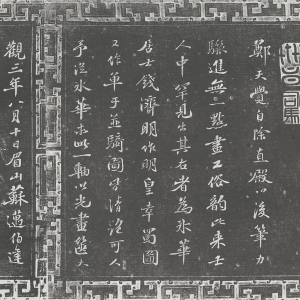 鄭天覺自除直殿以後筆力
驟進無一點畫工俗韵比来士
人中罕見出其右者為氷華
居士錢濟明作明皇幸蜀圖
又作單于並騎圖皆清絶可人
予従氷華求此一軸以光畫篋
觀三年八月十日眉山蘇邁伯達